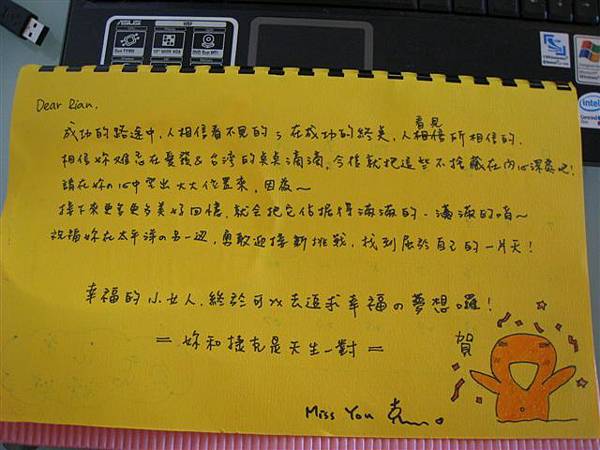 ASUS
Dear Rian,
成功的路途中,人相信看不見的;在成功的終點,人看見所相信的.
相信妳難忘在愛發&台灣的點點滴滴,今後就把這些不捨藏在內心深處吧!
請在妳の心中空出大大位置來,因為~
接下來更多更多美好回憶,就會把它佔據得滿滿的、滿滿的唷~
祝福妳在太平洋の另一邊,勇敢迎接新挑戰,找到屬於自己的一片天!
幸福的小女人,終於可以去追求幸福の夢想囉!
= 妳和捷克是天生一對 =
賀
Miss You
intel